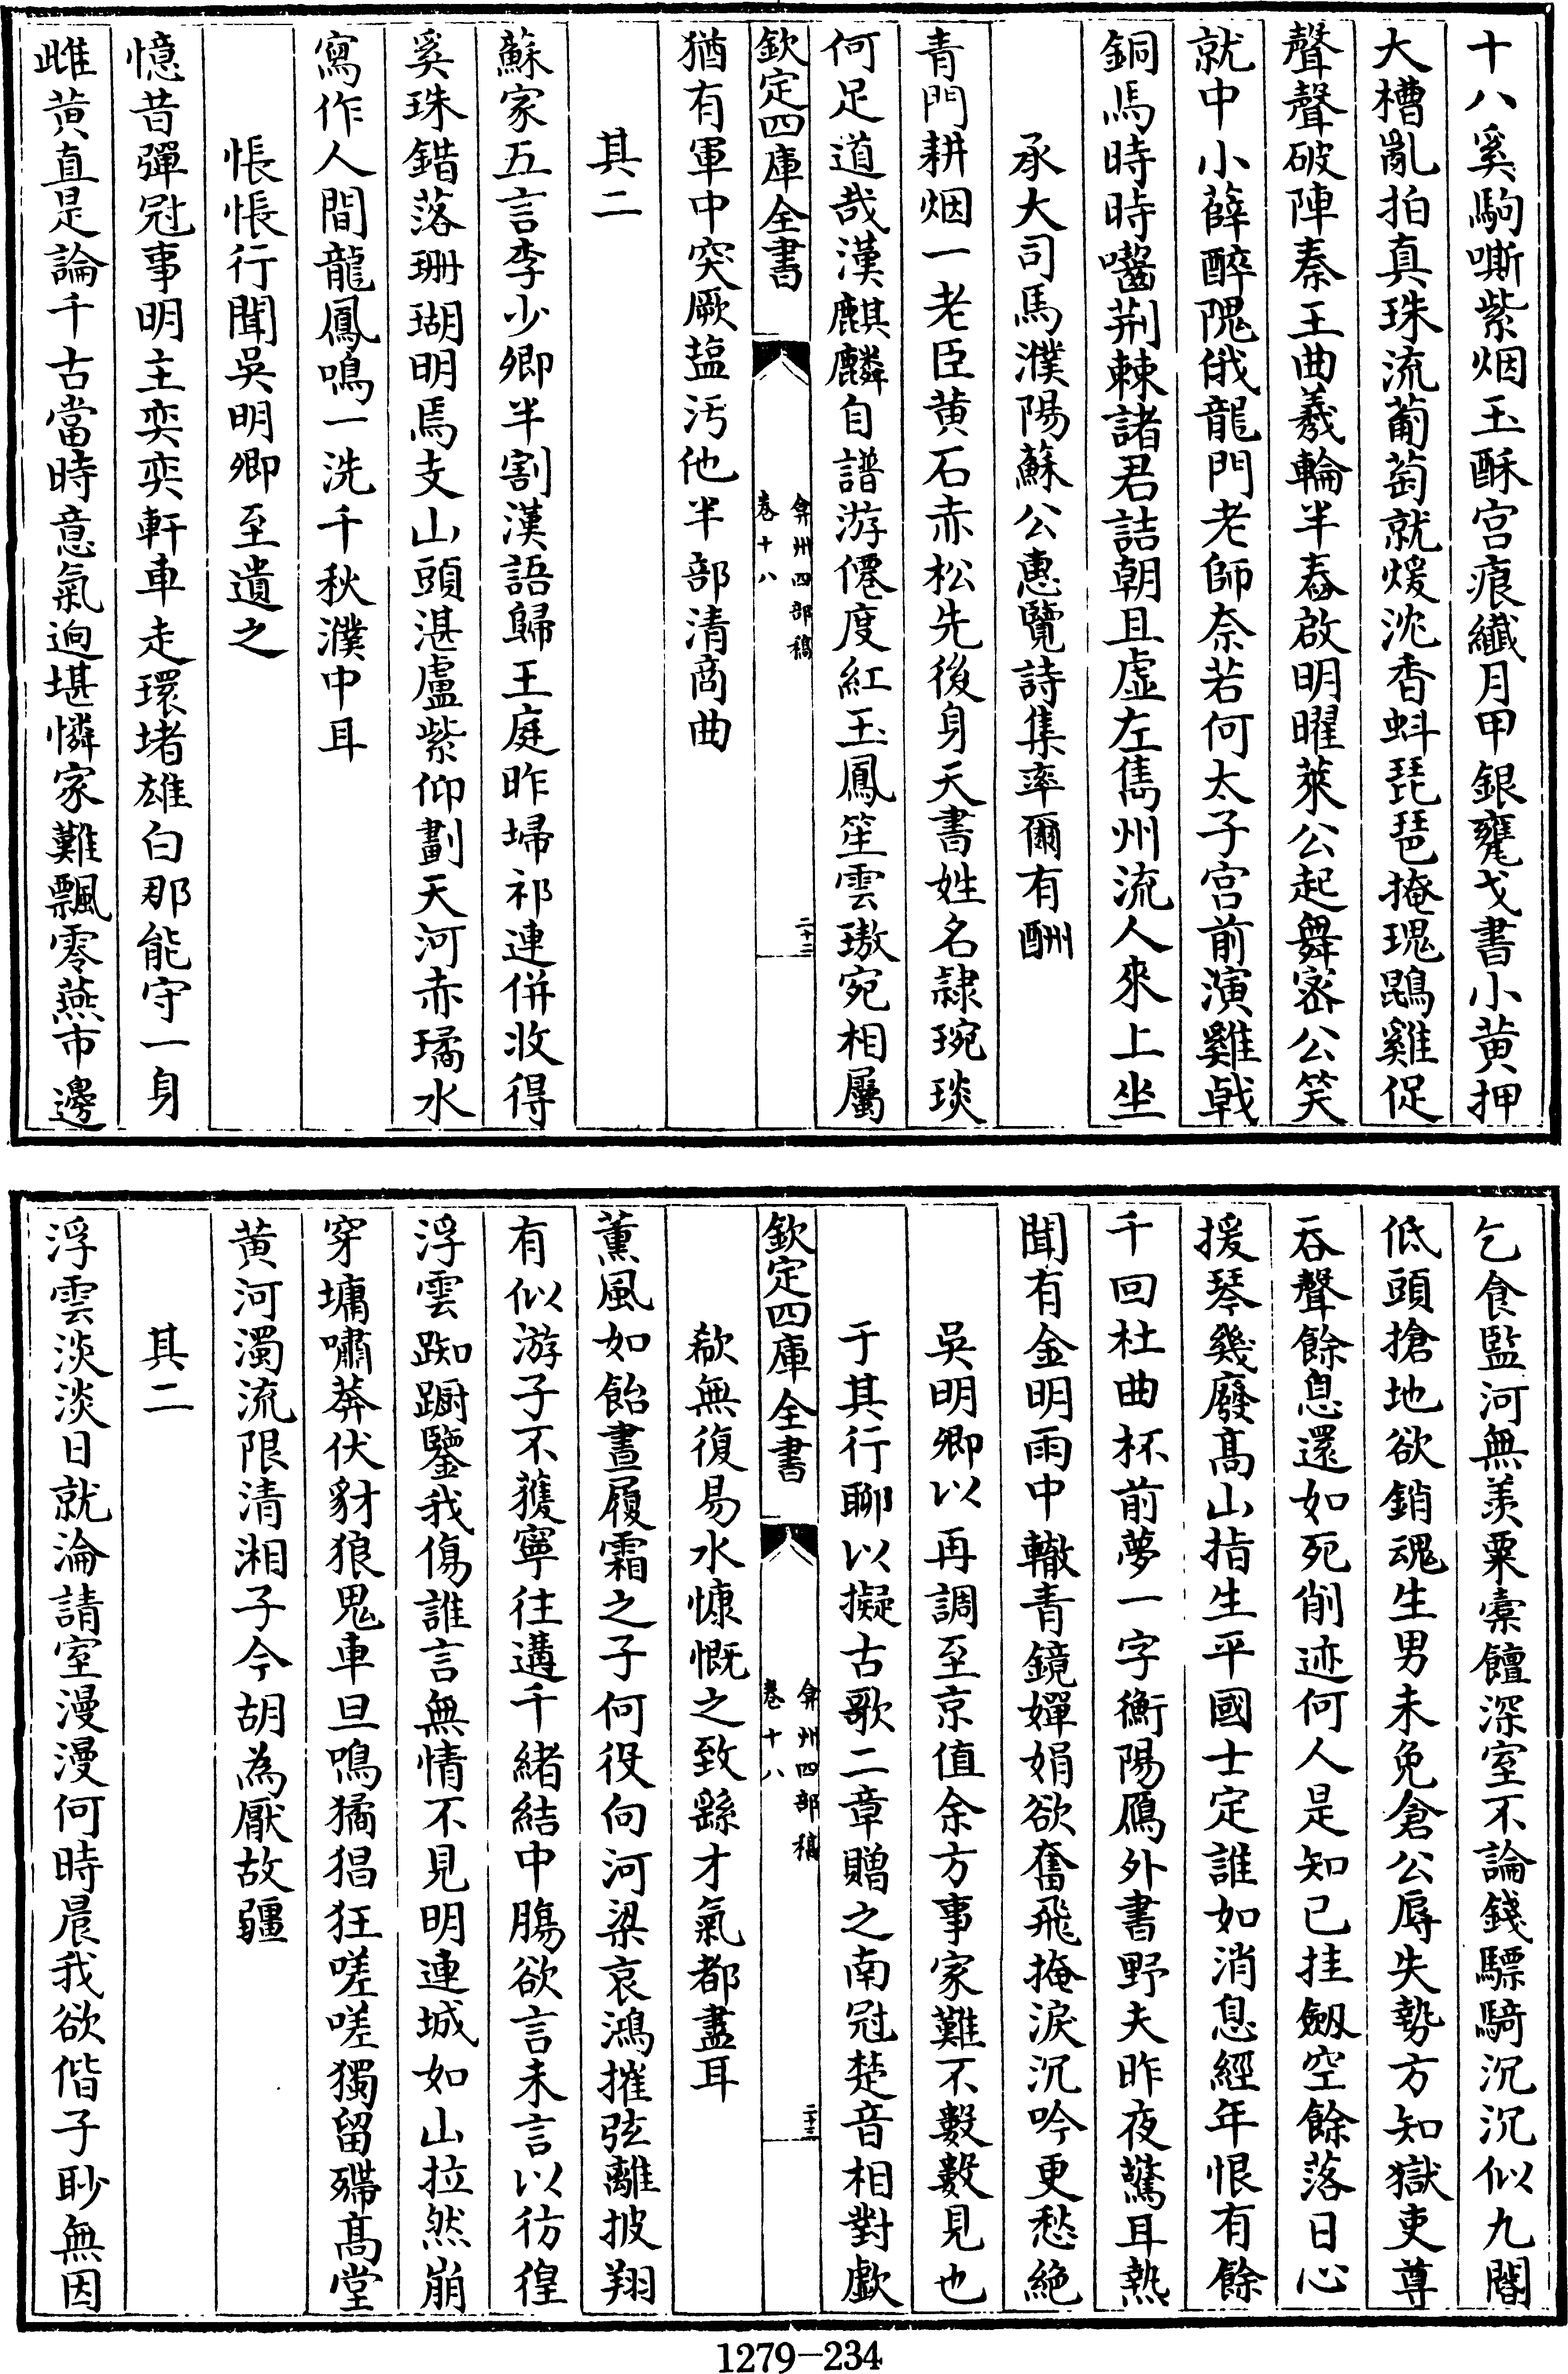 十八奚駒嘶紫烟玉酥宫痕纖月甲銀甕戈書小黄押
大槽亂拍真珠流葡萄就煖沈香蚪琵琶掩瑰鵾雞促
聲聲破陣秦王曲羲輪半舂啟明曜萊公起舞宻公笑
就中小薛醉隗俄龍門老師奈若何太子宫前演雞㦸
銅馬時時囓荆棘諸君詰朝且虚左雋州流人來上坐
承大司馬濮陽蘇公惠覽詩集率爾有酬
青門耕烟一老臣黄石赤松先後身天書姓名隷琬琰
何足道哉漢麒麟自譜游僊度紅玉鳳笙雲璈宛相屬
欽定四庫全書
弇州四部稿
卷十八
二十二
猶有軍中突厥鹽汚他半部清商曲
其二
蘇家五言李少卿半割漢語歸王庭昨埽祁連併收得
奚珠錯落珊瑚明焉支山頭湛盧紫仰劃天河赤璚水
寫作人間龍鳳鳴一洗千秋濮中耳
悵悵行聞吳明卿至遺之
憶昔彈冠事明主奕奕軒車走環堵雄白那能守一身
雌黄真是論千古當時意氣逈堪憐家難飄零燕市邊
乞食監河無羡粟槖饘深室不論錢驃騎沉沉似九閽
低頭搶地欲銷魂生男未免倉公辱失勢方知獄吏尊
吞聲餘息還如死削迹何人是知已挂劔空餘落日心
援琴幾廢髙山指生平國士定誰如消息經年恨有餘
千回杜曲杯前夢一字衡陽鴈外書野夫昨夜驚耳熱
聞有金明雨中轍青鏡嬋娟欲奮飛掩淚沉吟更愁絶
吳明卿以再調至京值余方事家難不數數見也
于其行聊以擬古歌二章贈之南冠楚音相對歔
欽定四庫全書
弇州四部稿
卷十八
二十三
欷無復易水慷慨之致繇才氣都盡耳
薫風如飴晝履霜之子何役向河梁哀鴻摧弦離披翔
有似游子不獲寧往遘千緒結中腸欲言未言以彷徨
浮雲踟蹰鑒我傷誰言無情不見明連城如山拉然崩
穿墉嘯莽伏豺狼鬼車旦鳴獝猖狂嗟嗟獨留殢髙堂
黄河濁流限清湘子今胡為厭故疆
其二
浮雲淡淡日就淪請室漫漫何時晨我欲偕子眇無因
1279-234